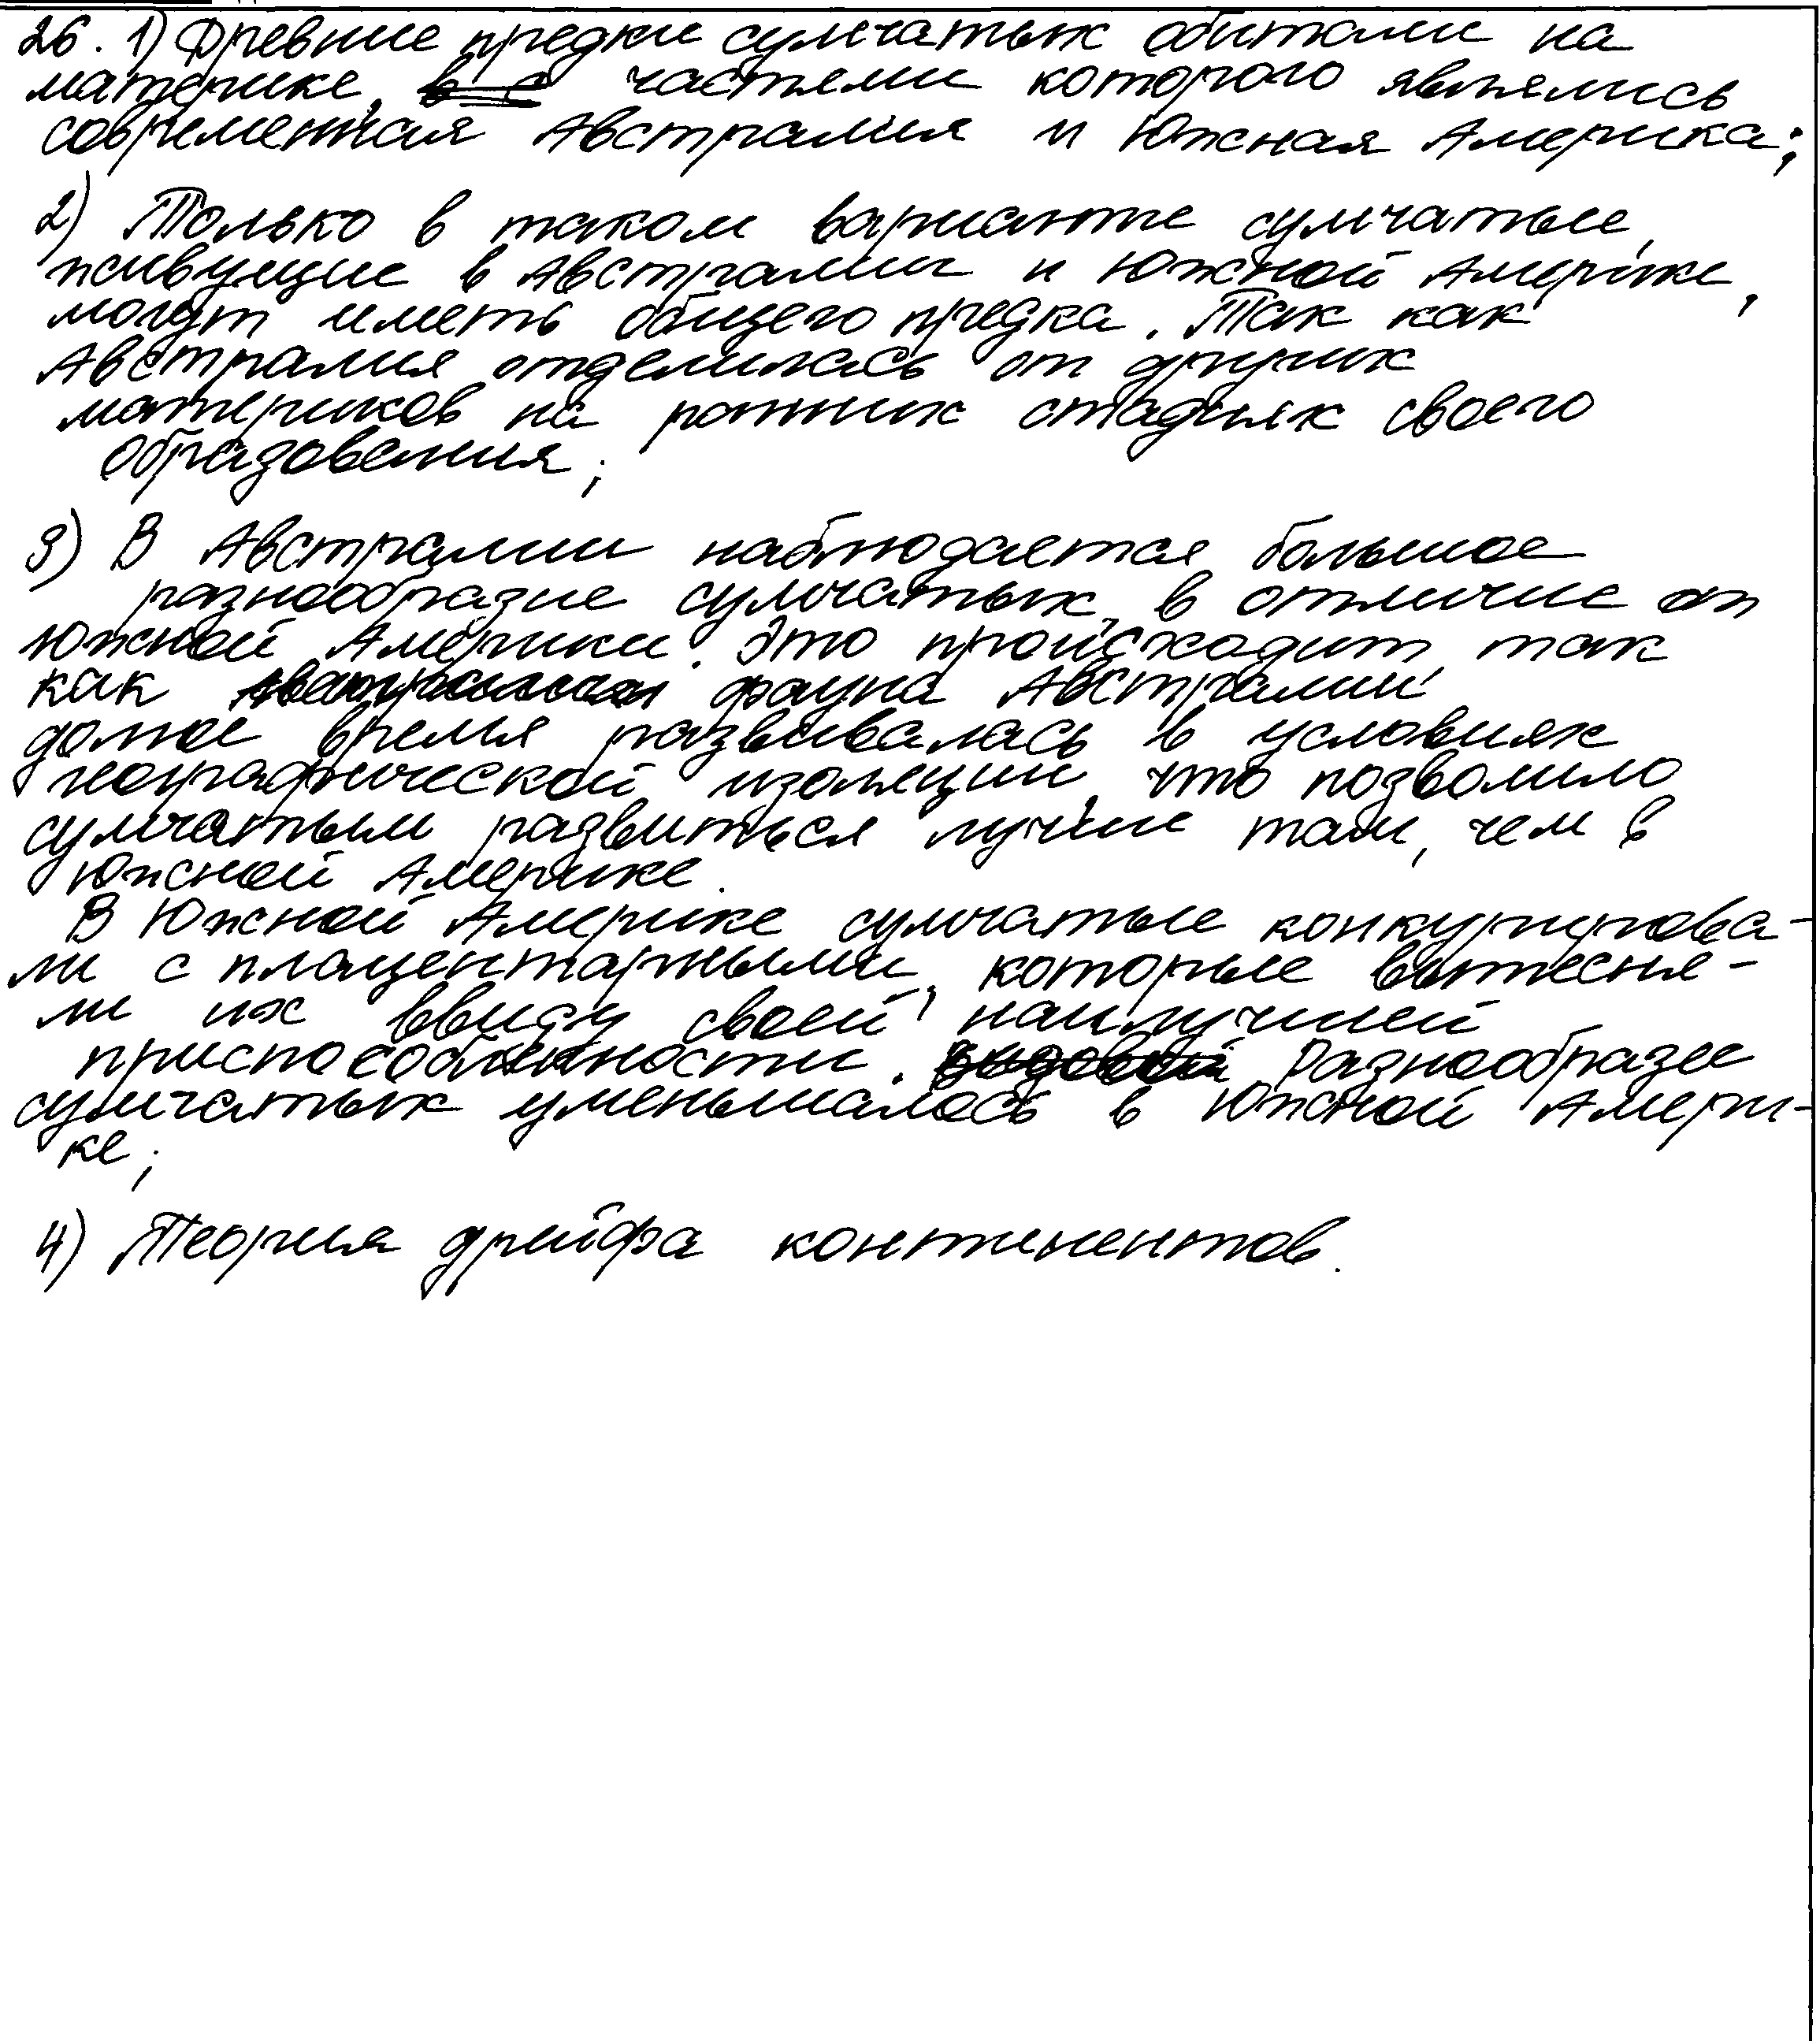 26. 1) Древние предки сумчатых обитали на
материке, частями которого являлись
современная Австралия и Южная Америка;
2) Только в таком варианте сумчатые,
живущие в Австралии и Южной Америке,
могут иметь общего предка. Так как
Австралия отделилась от других
материков на ранних стадиях своего
образования;
3) В Австралии наблюдается большое
разнообразие сумчатых, в отличие от
Южной Америки. Это происходит, так
как фауна Австралии
долгое время развивалась в условиях
географической изоляции, что позволило
сумчатым развиться лучше там, чем в
Южной Америке.
В Южной Америке сумчатые конкурирова-
ли с плацентарными, которые вытесня-
ли их ввиду своей наилучшей
приспособленности. Разнообразие
сумчатых уменьшалось в Южной Амери-
ке;
4) Теория дрейфа континентов.